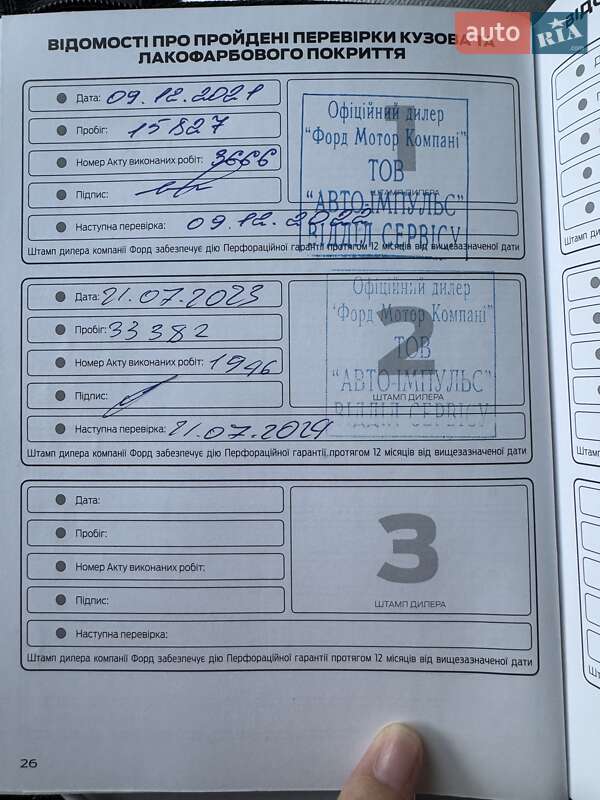 auto RIA
.com
ВІДОМОСТІ ПРО ПРОЙДЕНІ ПЕРЕВІРКИ КУЗОВА ТА
ЛАКОФАРБОВОГО ПОКРИТТЯ
Дата: 09.12.2021
Пробіг: 15827
Номер Акту виконаних робіт: 3666
Підпис:
Наступна перевірка: 09.12.2022
1
ШТАМП ДИЛЕРА
Офіційний дилер
"Форд Мотор Компані"
ТОВ
"АВТО-ІМПУЛЬС"
ВІДДІЛ СЕРВІСУ
Штамп дилера компанії Форд забезпечує дію Перфораційної гарантії протягом 12 місяців від вищезазначеної дати
Дата: 21.07.2023
Пробіг: 33382
Номер Акту виконаних робіт: 1946
Підпис:
Наступна перевірка: 21.07.2024
2
ШТАМП ДИЛЕРА
Офіційний дилер
"Форд Мотор Компані"
ТОВ
"АВТО-ІМПУЛЬС"
ВІДДІЛ СЕРВІСУ
Штамп дилера компанії Форд забезпечує дію Перфораційної гарантії протягом 12 місяців від вищезазначеної дати
Дата:
Пробіг:
Номер Акту виконаних робіт:
Підпис:
Наступна перевірка:
3
ШТАМП ДИЛЕРА
Штамп дилера компанії Форд забезпечує дію Перфораційної гарантії протягом 12 місяців від вищезазначеної дати
26